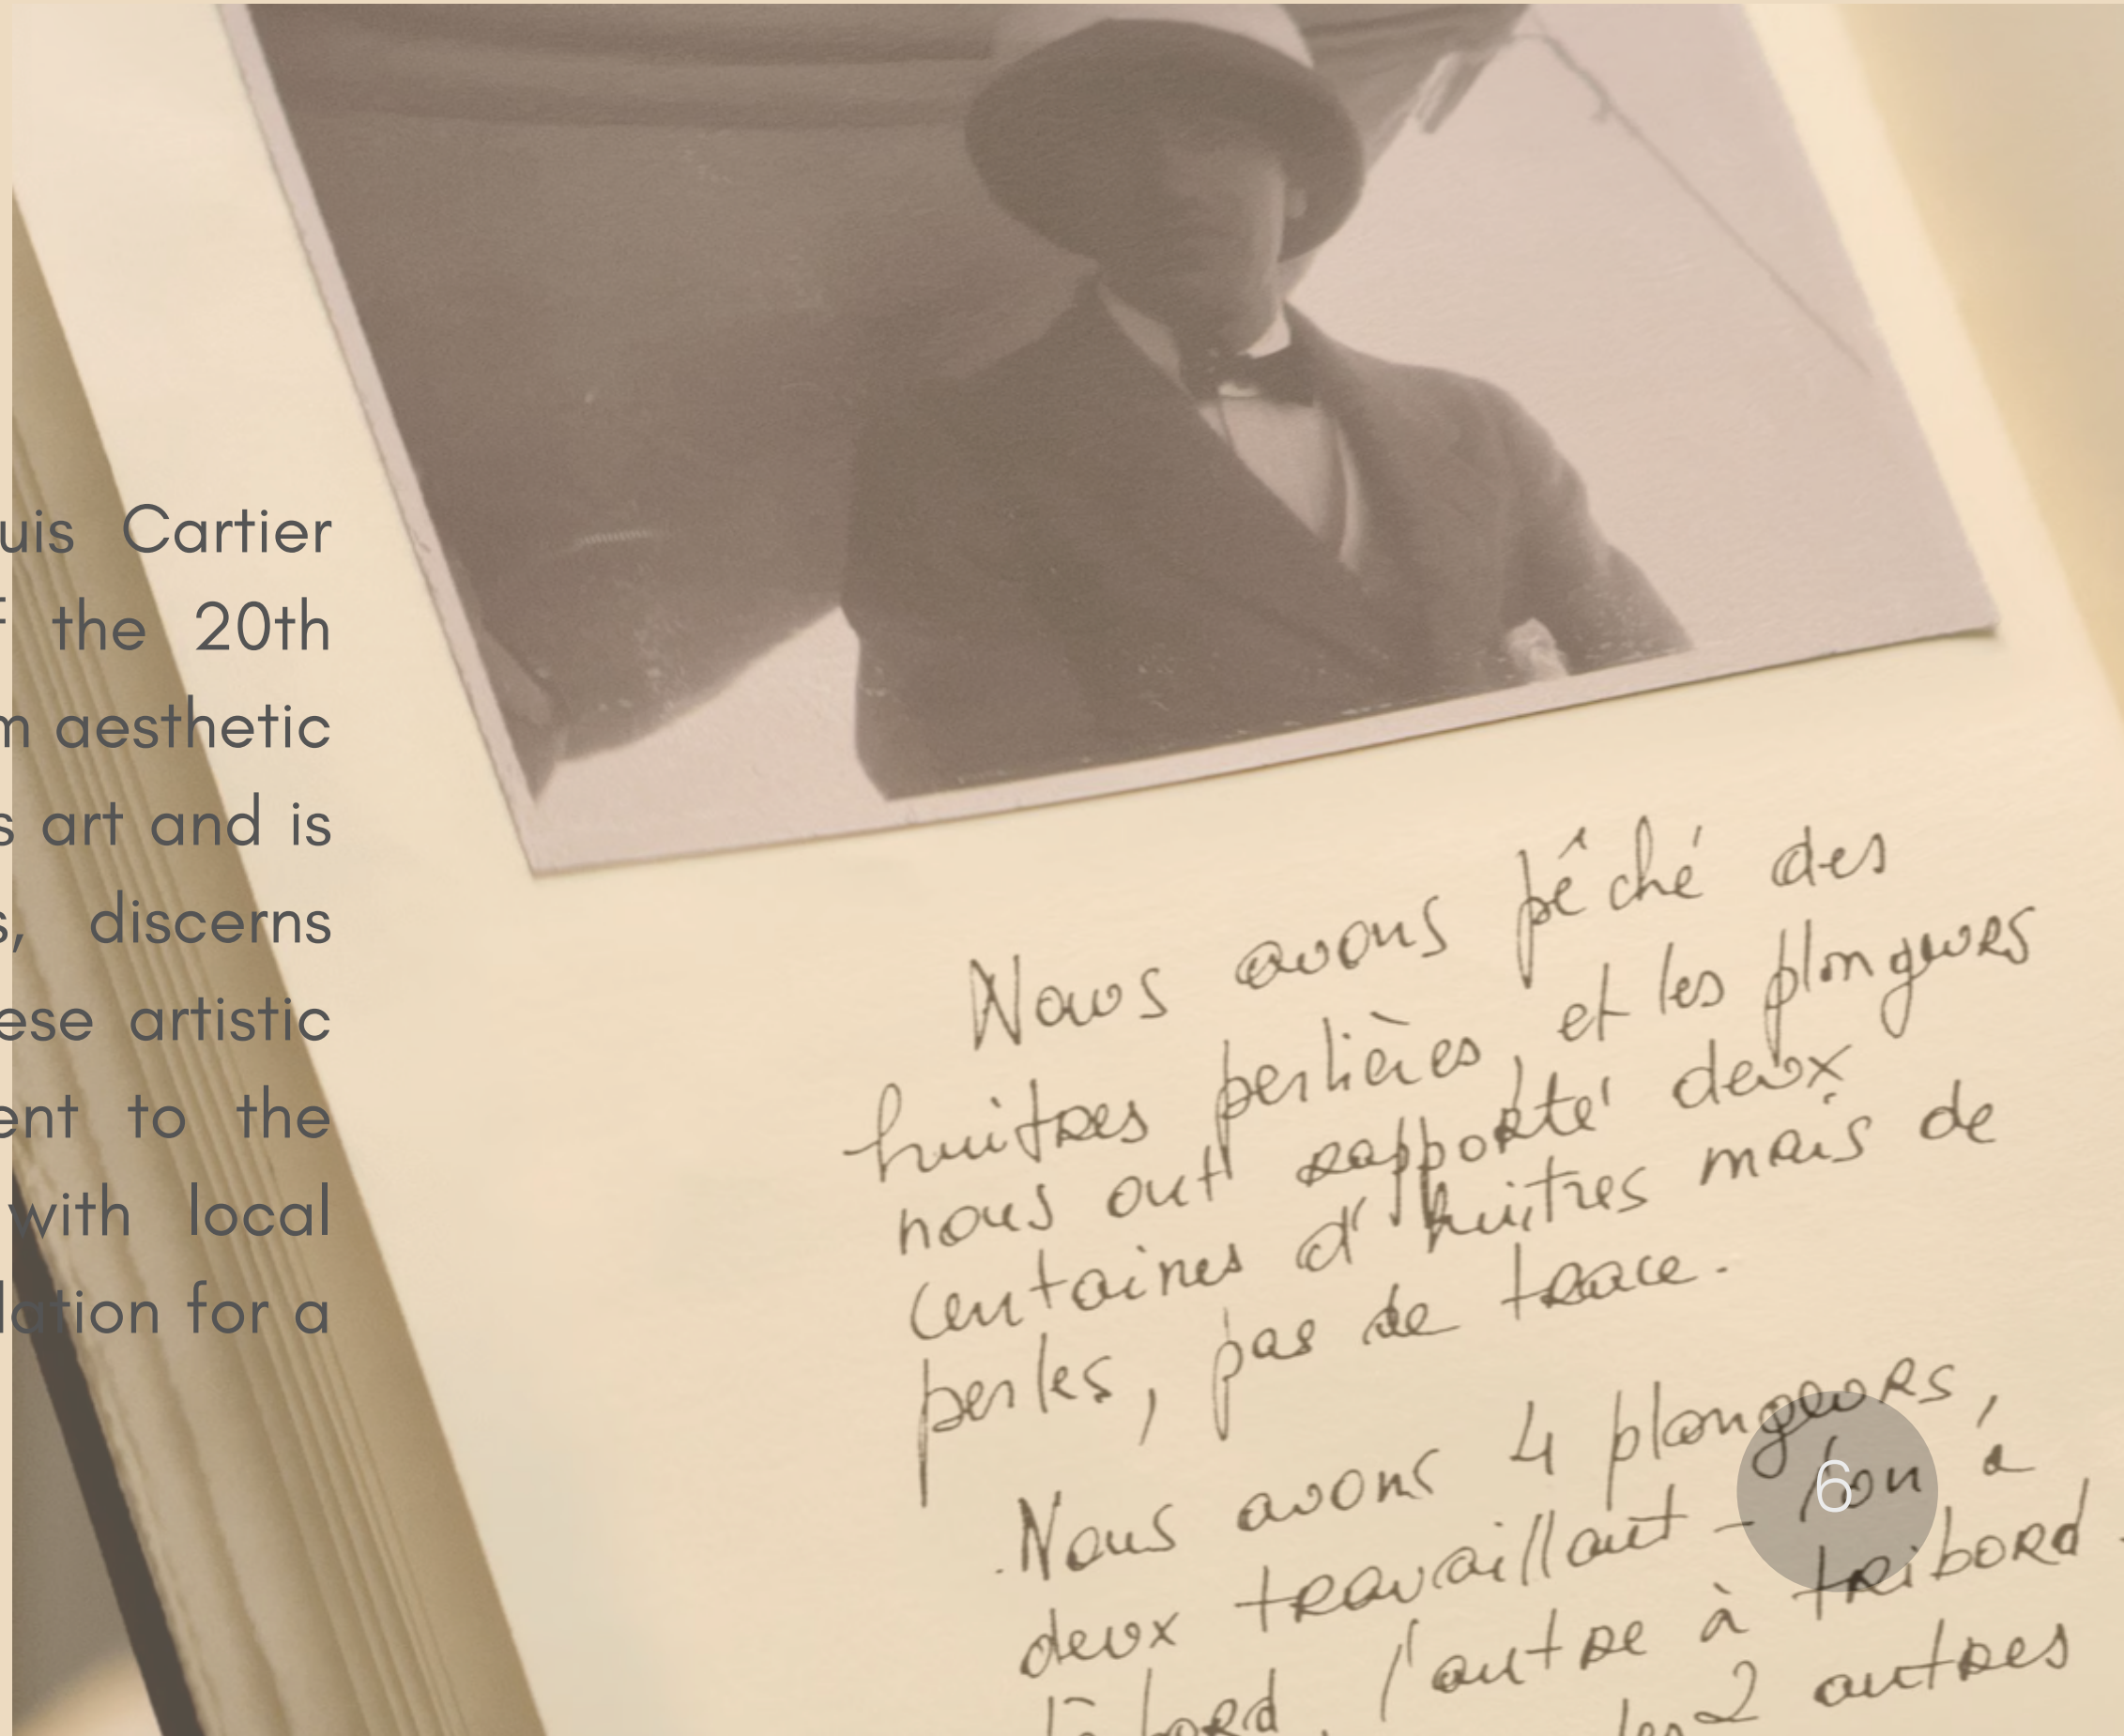 uis Cartier
f the 20th
m aesthetic
s art and is
s, discerns
ese artistic
ent to the
with local
lation for a
Nous avons pêché des
huitres perlières, et les plongeurs
nous ont rapporté deux
centaines d'huitres mais de
perles, pas de trace.
Nous avons 4 plongeurs,
deux travaillant - l'on à
bord, l'autre à tribord -
les 2 autres
6